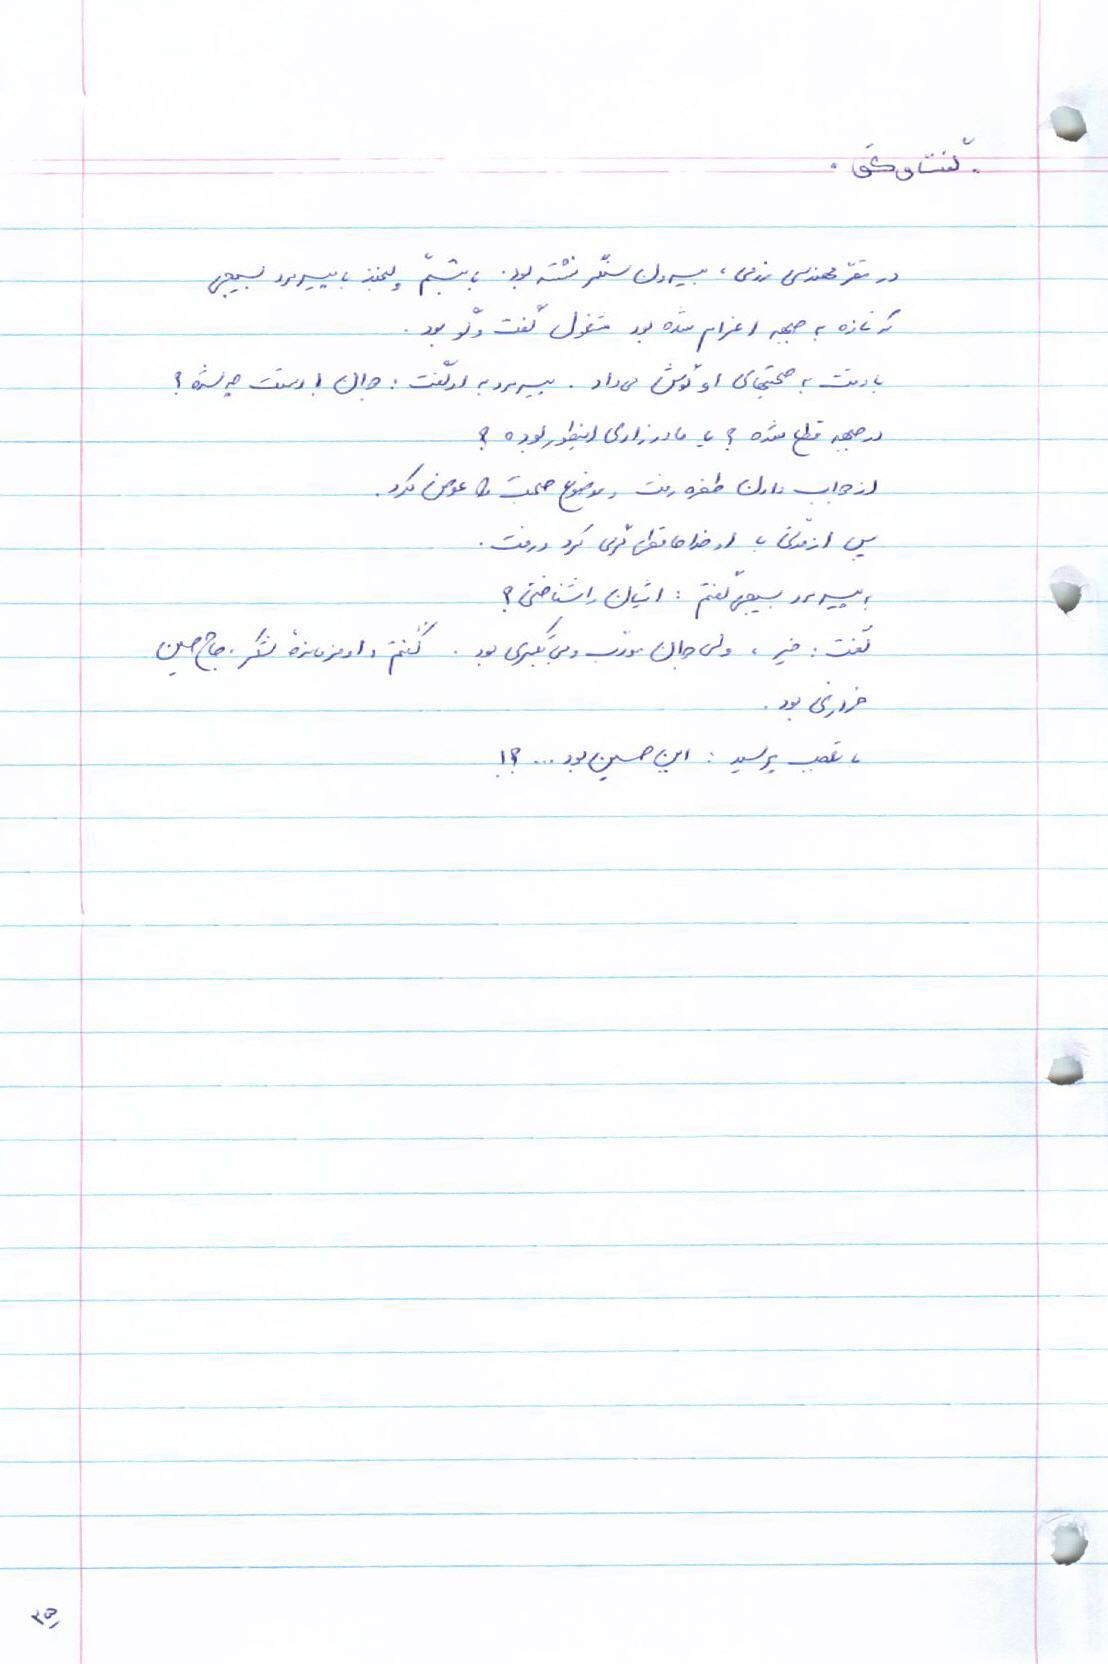 در مقرّ مهندسی رزمی، بیرون سنگر نشسته بود. با تبسّم و لبخند با پیرمرد بسیجی
که تازه به جبهه اعزام شده بود مشغول گفت و گو بود.
با دقت به صحبتهای او گوش می‌داد. پیرمرد به او گفت: جوان! دستت چه شده؟
در جبهه قطع شده؟ یا مادرزادی اینطور بوده؟
از جواب دادن طفره رفت و موضوع صحبت را عوض کرد.
پس از مدّتی با او خداحافظی گرمی کرد و رفت.
به پیرمرد بسیجی گفتم: ایشان را شناختی؟
گفت: خیر، ولی جوان مؤدّب و می‌گیری بود. گفتم: او فرماندهٔ لشگر، حاج حسین
خرازی بود.
با تعجب پرسید: این حسین بود...؟!